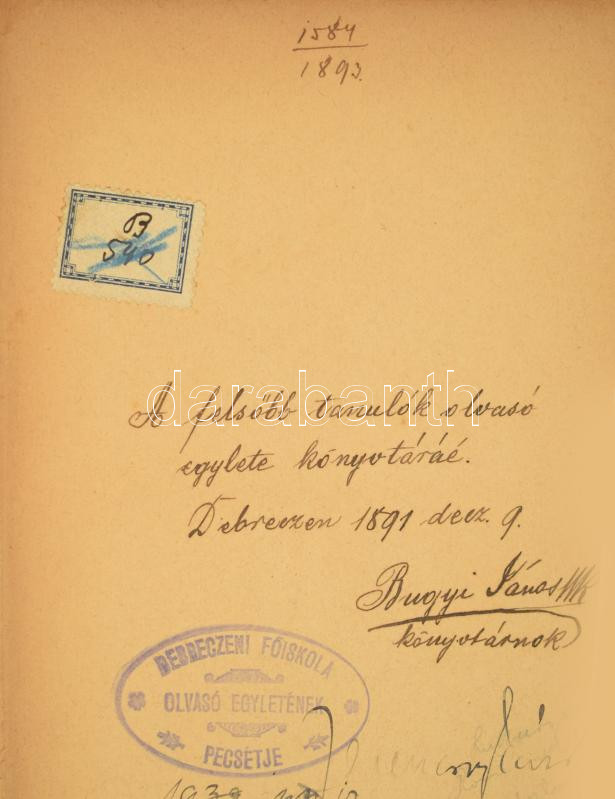 1584
1893.
B
540
darabanth
A felsőbb tanulók olvasó
egylete könyvtáráé.
Debreczen 1891 decz. 9.
Bugyi János
könyvtárnok
DEBRECZENI FŐISKOLA
OLVASÓ EGYLETÉNEK
PECSÉTJE